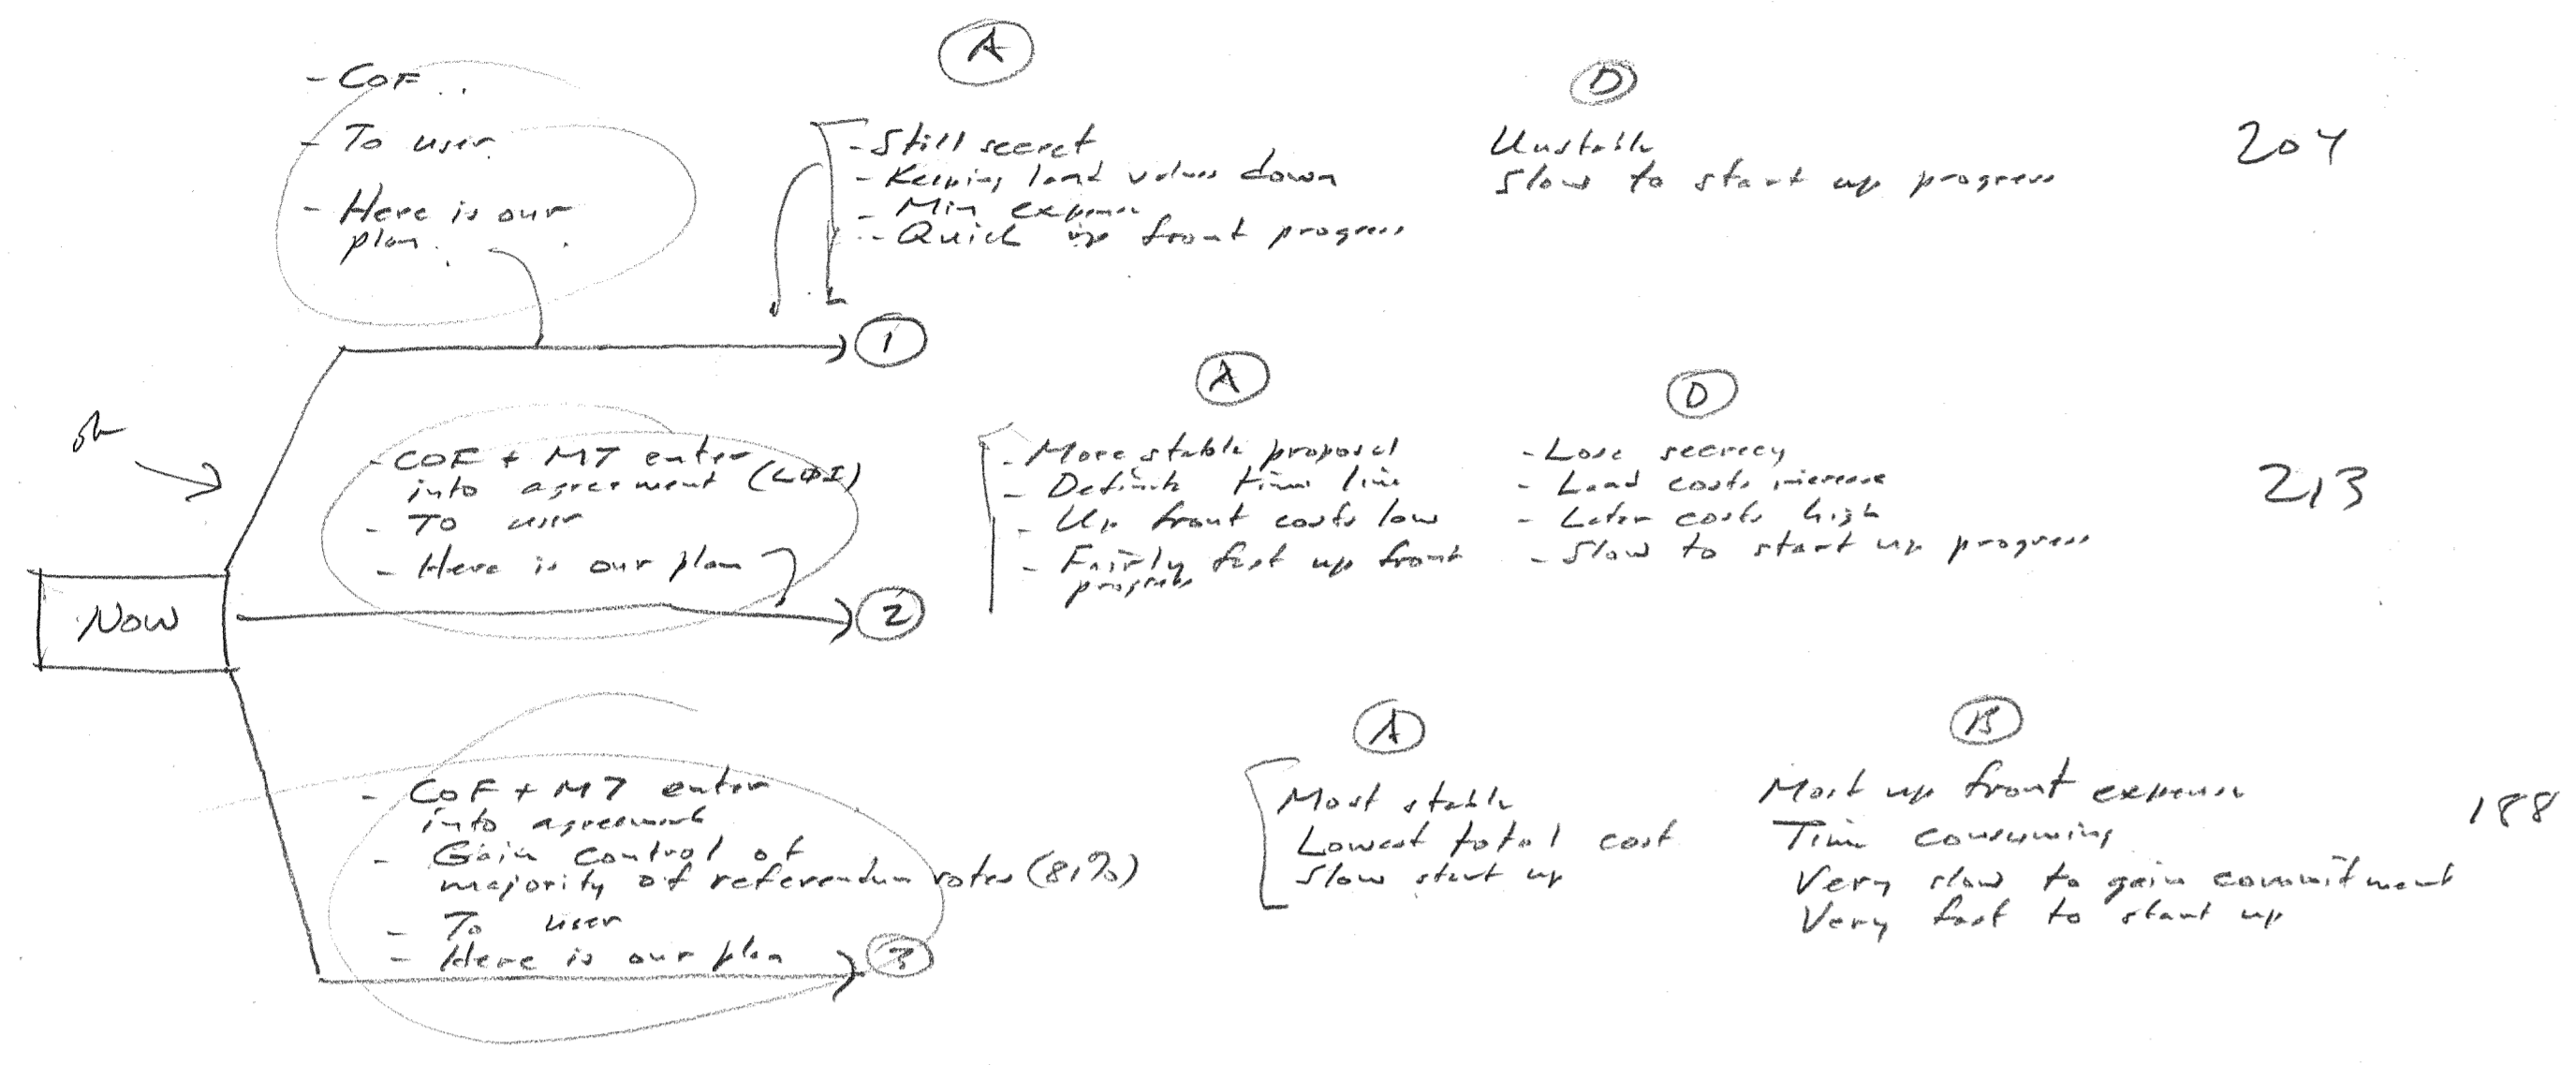 A
D
- COF
- To user
- Here is our
plan
- Still secret
- Keeping land values down
- Min expense
- Quick up front progress
Unstable
Slow to start up progress
204
1
A
D
- COF + MT enter
into agreement (LOI)
- To user
- Here is our plan
- More stable proposal
- Definite time line
- Up front costs low
- Fairly fast up front
progress
- Lose secrecy
- Land costs increase
- Later costs high
- Slow to start up progress
213
NOW
2
A
B
- COF + MT enter
into agreement
- Gain control of
majority of referendum votes (81%)
- To user
- Here is our plan
Most stable
Lowest total cost
Slow start up
Most up front expense
Time consuming
Very slow to gain commitment
Very fast to start up
188
3